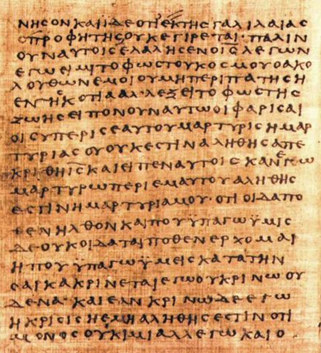 ΝΗϹΟΝ ΚΑΙ ΙΔΕ ΟΤΙ ΕΚ ΤΗϹ ΓΑΛΙΛΑΙΑϹ
Ο ΠΡΟΦΗΤΗϹ ΟΥΚ ΕΓΙΡΕΤΑΙ· ΠΑΛΙΝ
ΟΥΝ ΑΥΤΟΙϹ ΕΛΑΛΗϹΕΝ Ο ΙϹ ΛΕΓΩΝ
ΕΓΩ ΕΙΜΙ ΤΟ ΦΩϹ ΤΟΥ ΚΟϹΜΟΥ Ο ΑΚΟ
ΛΟΥΘΩΝ ΕΜΟΙ ΟΥ ΜΗ ΠΕΡΙΠΑΤΗϹΗ
ΕΝ ΤΗ ϹΚΟΤΙΑ ΑΛΛ ΕΞΕΙ ΤΟ ΦΩϹ ΤΗϹ
ΖΩΗϹ ΕΙΠΟΝ ΟΥΝ ΑΥΤΩ ΟΙ ΦΑΡΙϹΑΙ
ΟΙ ϹΥ ΠΕΡΙ ϹΕΑΥΤΟΥ ΜΑΡΤΥΡΙϹ Η ΜΑΡ
ΤΥΡΙΑ ϹΟΥ ΟΥΚ ΕϹΤΙΝ ΑΛΗΘΗϹ ΑΠΕ
ΚΡΙΘΗ ΙϹ ΚΑΙ ΕΙΠΕΝ ΑΥΤΟΙϹ ΚΑΝ ΕΓΩ
ΜΑΡΤΥΡΩ ΠΕΡΙ ΕΜΑΥΤΟΥ ΑΛΗΘΗϹ
ΕϹΤΙΝ Η ΜΑΡΤΥΡΙΑ ΜΟΥ· ΟΤΙ ΟΙΔΑ ΠΟ
ΘΕΝ ΗΛΘΟΝ ΚΑΙ ΠΟΥ ΥΠΑΓΩ ΥΜΙϹ
ΔΕ ΟΥΚ ΟΙΔΑΤΑΙ ΠΟΘΕΝ ΕΡΧΟΜΑΙ
Η ΠΟΥ ΥΠΑΓΩ ΥΜΕΙϹ ΚΑΤΑ ΤΗΝ
ϹΑΡΚΑ ΚΡΙΝΕΤΑΙ ΕΓΩ ΟΥ ΚΡΙΝΩ ΟΥ
ΔΕΝΑ· ΚΑΙ ΕΑΝ ΚΡΙΝΩ ΔΕ ΕΓΩ
Η ΚΡΙϹΙϹ Η ΕΜΗ ΑΛΗΘΗϹ ΕϹΤΙΝ ΟΤΙ
ΜΟΝΟϹ ΟΥΚ ΙΜΙ ΑΛΛ ΕΓΩ ΚΑΙ Ο